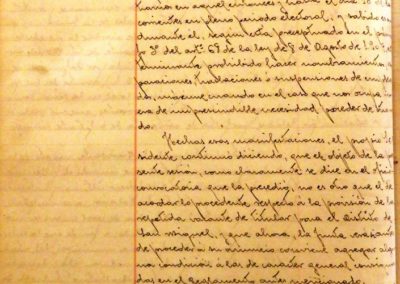 hando en aquel entonces y hasta el dia 10 del
corrientes en pleno periodo electoral, y sabido es
durante él, según está preceptuado en el
fo 3º del artº 68 de la ley de 8 de Agosto de
terminante prohibido hacer nombramientos
paraciones traslaciones ó suspensiones de
do, máxime cuando en el caso que nos ocupa
era de imprescindible necesidad proceder de
do.
Hechas esas manifestaciones, el propio
sidente continuó diciendo, que el objeto de la
sente sesión, como claramente se dice en el
convocatoria que la precedió, no es otro que el
acordar lo procedente respecto á la provisión de la
repetida vacante de titular para el distrito de
San Miguel, y que ahora, la Junta
de proceder á su anuncio conviene agregar
na condición á las de carácter general
das en el Reglamento antes mencionado.